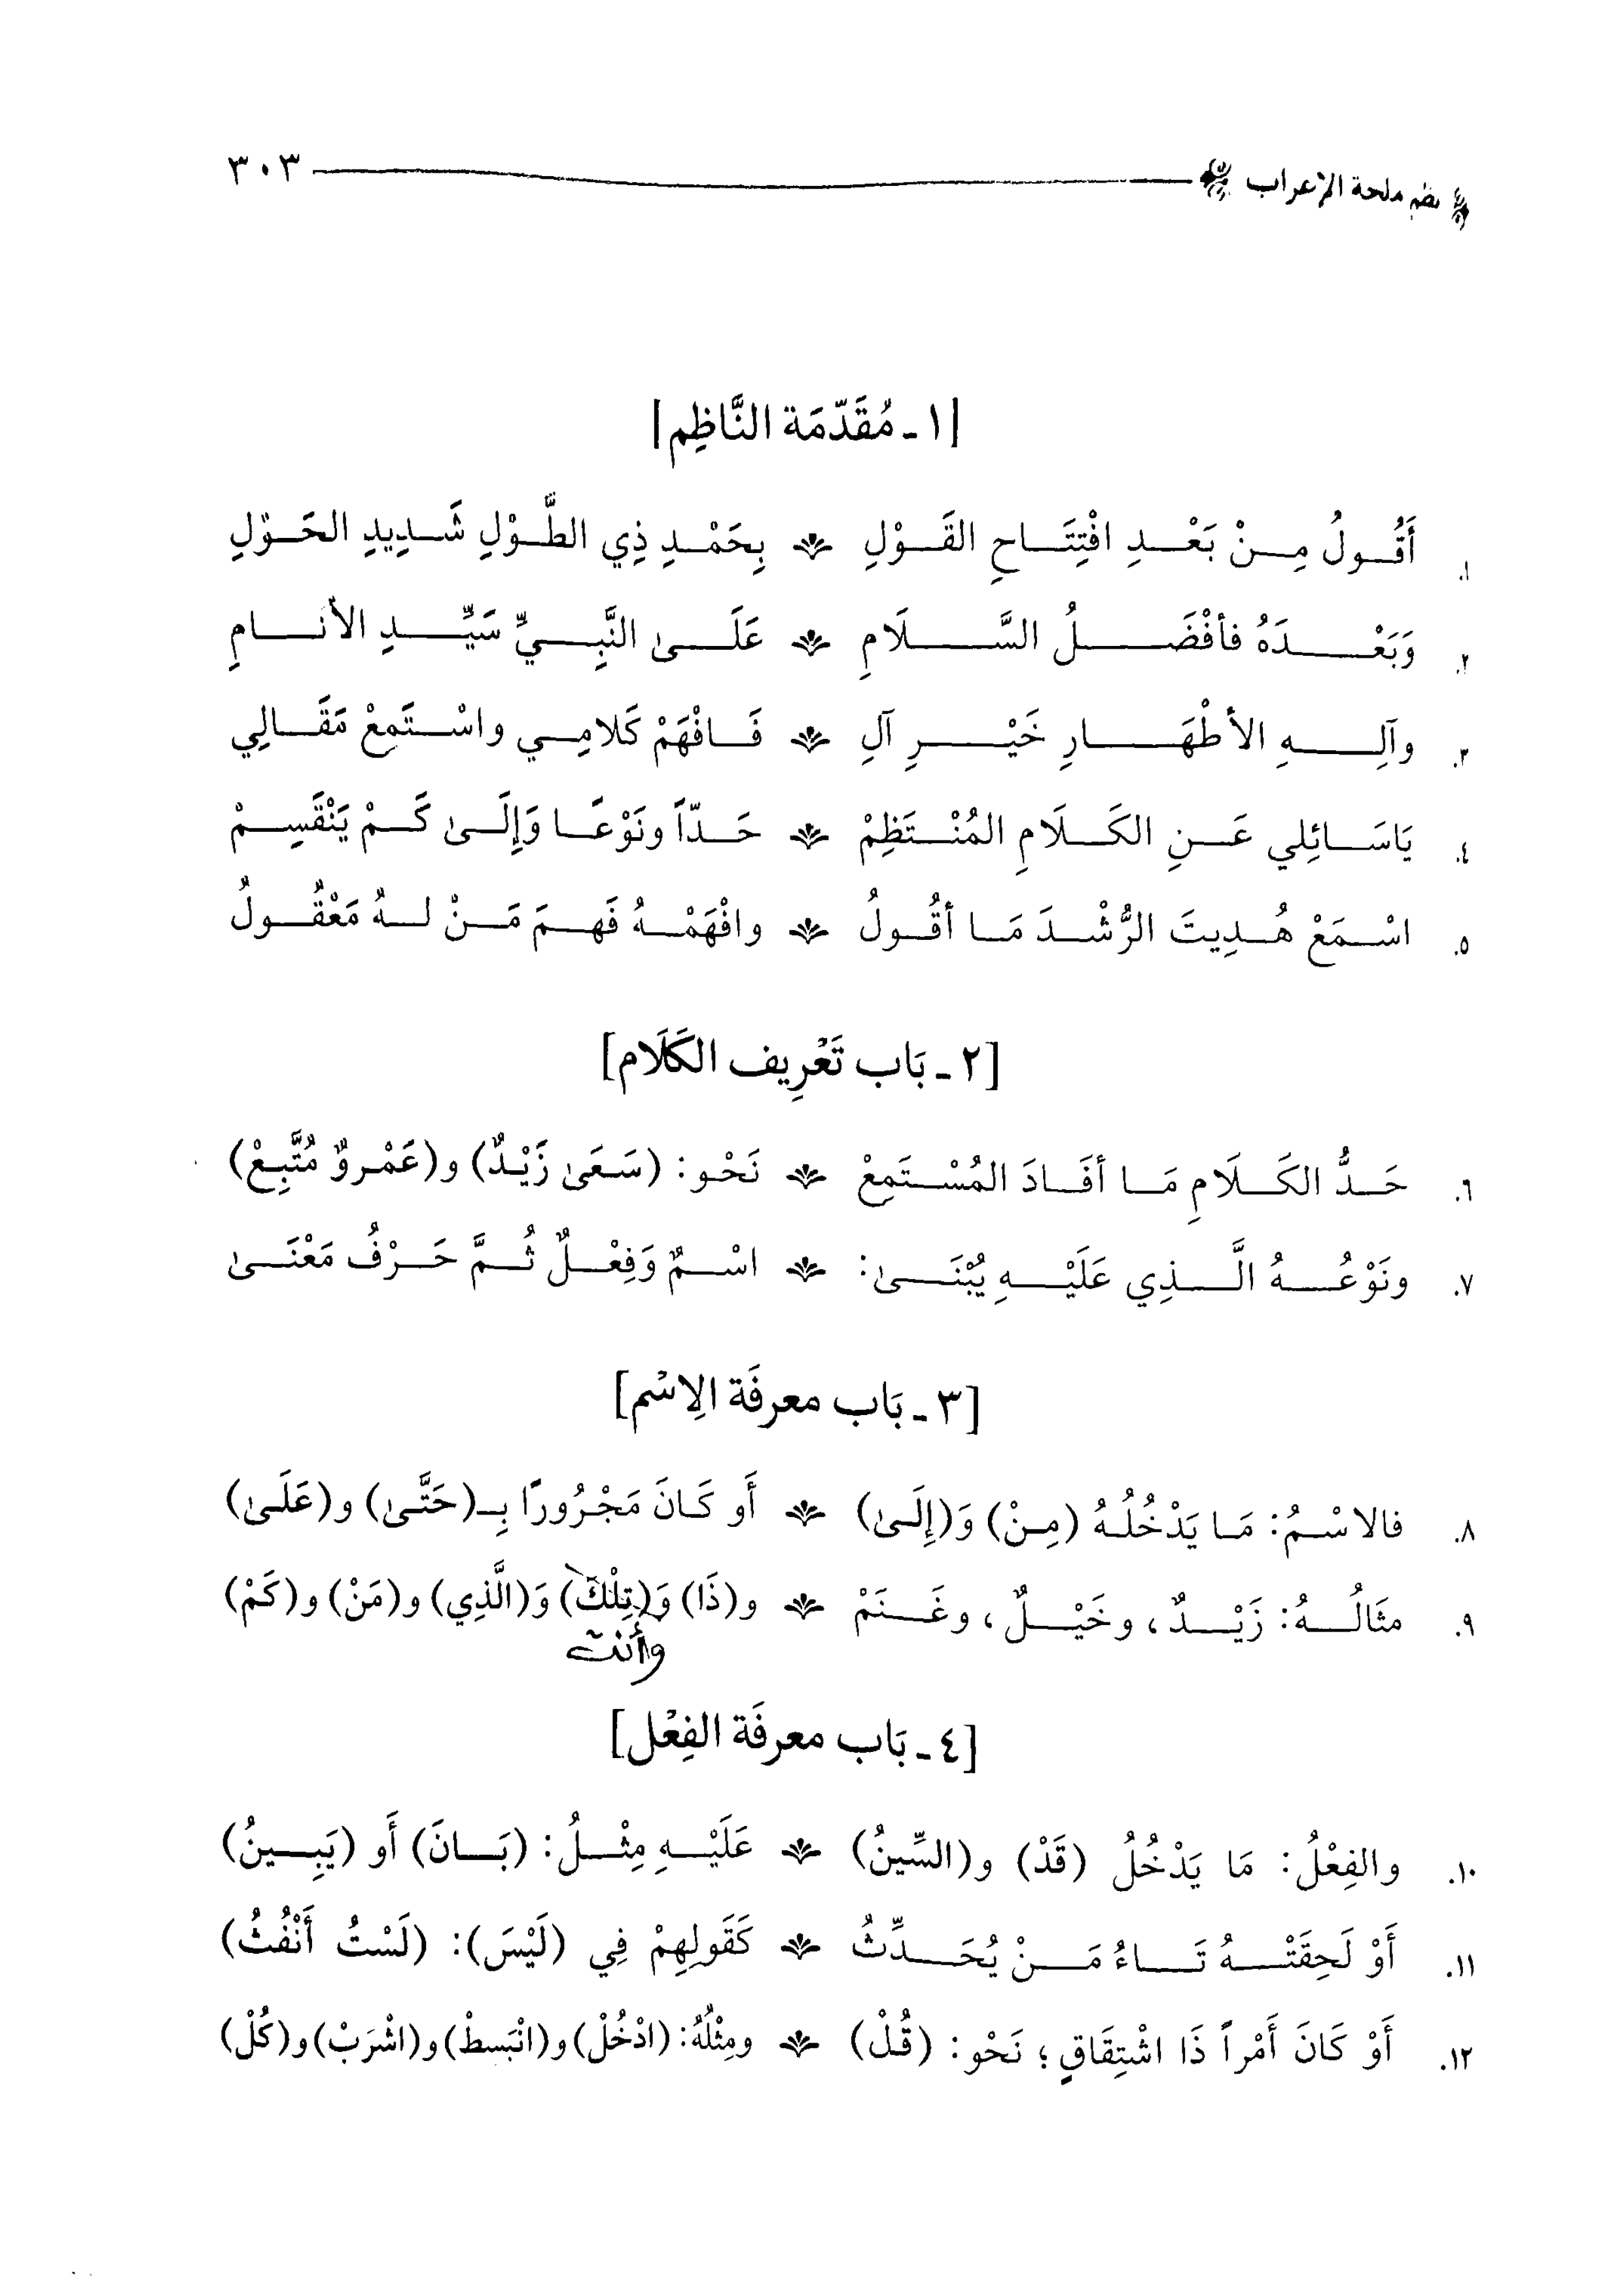 نظم ملحة الإعراب ٣٠٣
[١ - مُقَدّمَة النَّاظِم]
١. أَقُولُ مِنْ بَعْدِ افْتِتَاحِ القَوْلِ بِحَمْدِ ذِي الطَّوْلِ شَدِيدِ الحَوْلِ
٢. وَبَعْدَهُ فأفْضَلُ السَّلَامِ عَلَى النَّبِيِّ سَيِّدِ الأنَامِ
٣. وآلِهِ الأطْهَارِ خَيْرِ آلِ فَافْهَمْ كَلامِي واسْتَمِعْ مَقَالِي
٤. يَاسَائِلي عَنِ الكَلَامِ المُنْتَظِمْ حَدّاً ونَوْعًا وَإِلَى كَمْ يَنْقَسِمْ
٥. اسْمَعْ هُدِيتَ الرُّشْدَ مَا أقُولُ وافْهَمْهُ فَهمَ مَنْ لهُ مَعْقُولُ
[٢ - بَاب تَعْرِيف الكَلَام]
٦. حَدُّ الكَلَامِ مَا أفَادَ المُسْتَمِعْ نَحْو: (سَعَى زَيْدٌ) و(عَمْروٌ مُتَّبِعْ)
٧. ونَوْعُهُ الَّذِي عَلَيْهِ يُبْنَى: اسْمٌ وَفِعْلٌ ثُمَّ حَرْفُ مَعْنَى
[٣ - بَاب معرفَة الِاسْم]
٨. فالاسْمُ: مَا يَدْخُلُهُ (مِنْ) وَ(إِلَى) أَو كَانَ مَجْرُورًا بِـ(حَتَّى) و(عَلَى)
٩. مثَالُهُ: زَيْدٌ، وخَيْلٌ، وغَنَمْ و(ذَا) وَ(تِلْكَ) وَ(الَّذِي) و(مَنْ) و(كَمْ)
وأنت
[٤ - بَاب معرفَة الفِعْل]
١٠. والفِعْلُ: مَا يَدْخُلُ (قَدْ) و(السِّينُ) عَلَيْهِ مِثْلُ: (بَانَ) أَو (يَبِينُ)
١١. أَوْ لَحِقَتْهُ تَاءُ مَنْ يُحَدِّثُ كَقَولِهِمْ فِي (لَيْسَ): (لَسْتُ أَنْفُثُ)
١٢. أَوْ كَانَ أَمْراً ذَا اشْتِقَاقٍ؛ نَحْو: (قُلْ) ومِثْلُهُ: (ادْخُلْ) و(انْبَسِطْ) و(اشْرَبْ) و(كُلْ)